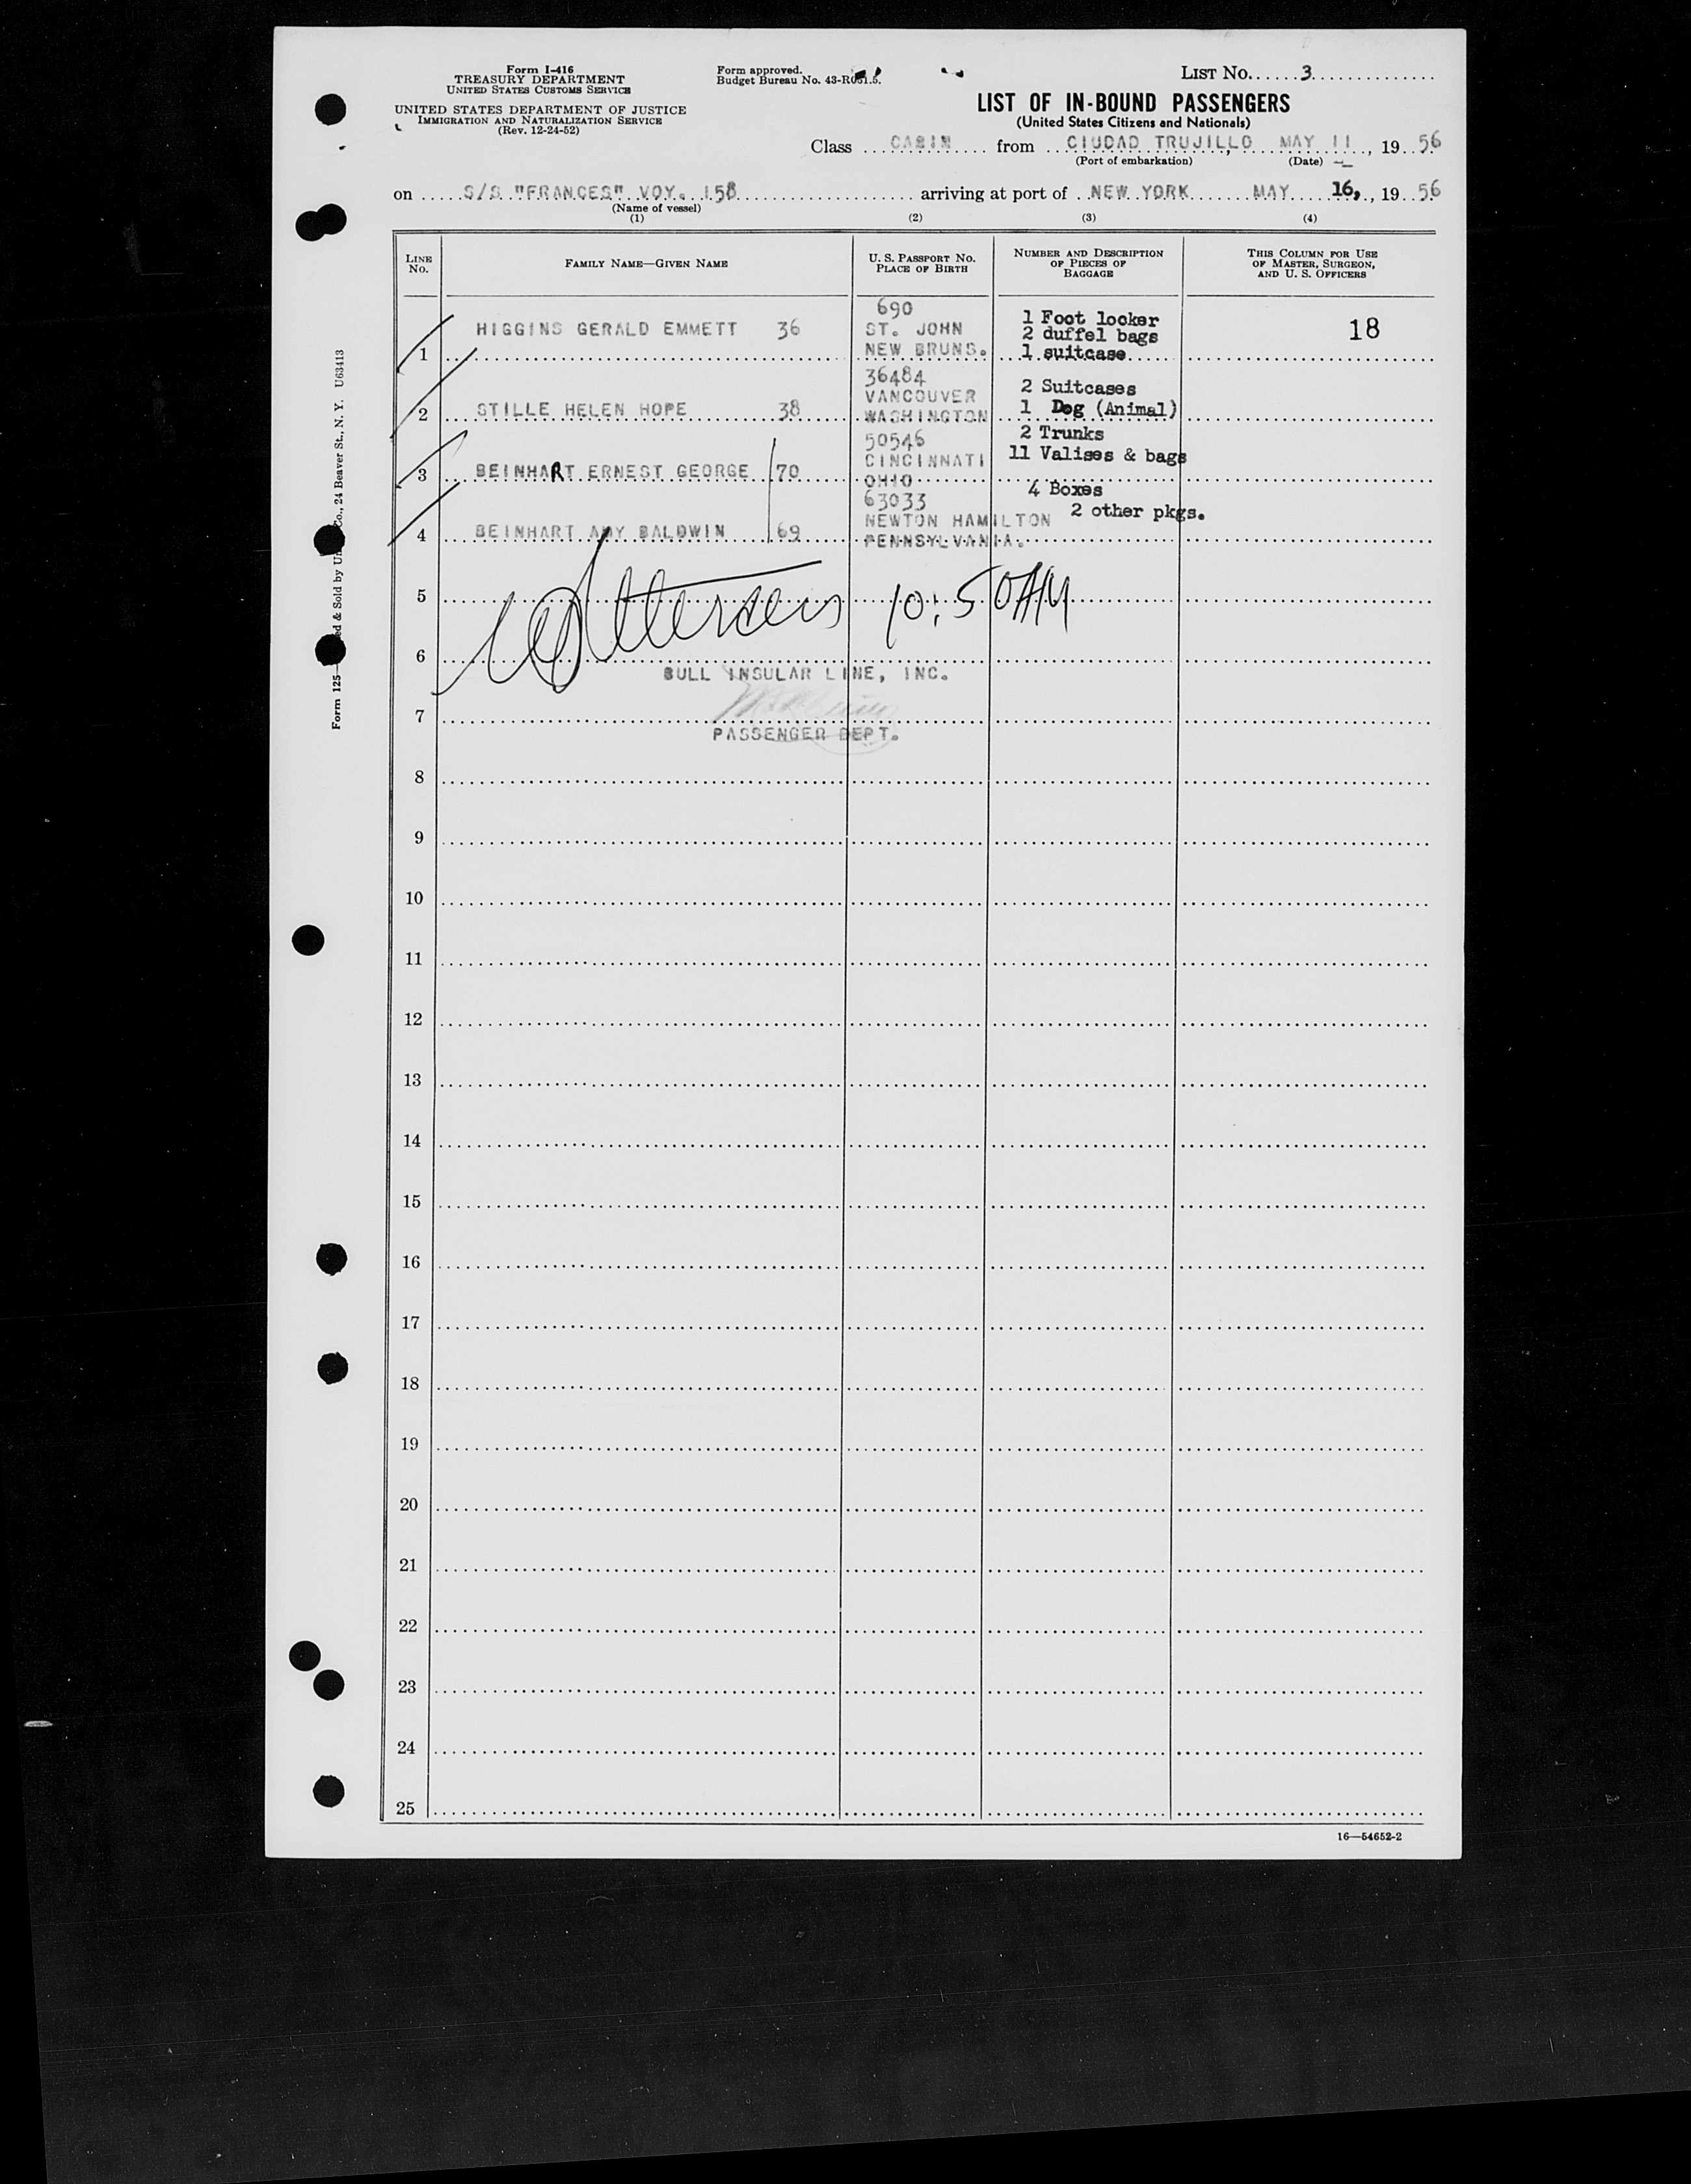 Form I-416
TREASURY DEPARTMENT
UNITED STATES CUSTOMS SERVICE
UNITED STATES DEPARTMENT OF JUSTICE
IMMIGRATION AND NATURALIZATION SERVICE
(Rev. 12-24-52)
Form approved.
Budget Bureau No. 43-R051.5.
LIST No. 3
LIST OF IN-BOUND PASSENGERS
(United States Citizens and Nationals)
Class CABIN from CIUDAD TRUJILLO MAY 11, 1956
(Port of embarkation) (Date)
on S/S "FRANCES" VOY. 158 arriving at port of NEW YORK MAY 16, 1956
(Name of vessel)
(1) (2) (3) (4)
LINE No.
FAMILY NAME—GIVEN NAME
U. S. PASSPORT No.
PLACE OF BIRTH
NUMBER AND DESCRIPTION
OF PIECES OF
BAGGAGE
THIS COLUMN FOR USE
OF MASTER, SURGEON,
AND U. S. OFFICERS
1 HIGGINS GERALD EMMETT 36
690
ST. JOHN
NEW BRUNS.
1 Foot locker
2 duffel bags
1 suitcase
18
2 STILLE HELEN HOPE 38
36484
VANCOUVER
WASHINGTON
2 Suitcases
1 Dog (Animal)
3 BEINHART ERNEST GEORGE 70
50546
CINCINNATI
OHIO
2 Trunks
11 Valises & bags
4 BEINHART AMY BALDWIN 69
63033
NEWTON HAMILTON
PENNSYLVANIA.
4 Boxes
2 other pkgs.
5
10:50AM
6
BULL INSULAR LINE, INC.
7
PASSENGER DEPT.
8
9
10
11
12
13
14
15
16
17
18
19
20
21
22
23
24
25
16—54652-2
Form 125— ed & Sold by Un Co., 24 Beaver St., N. Y. U63413